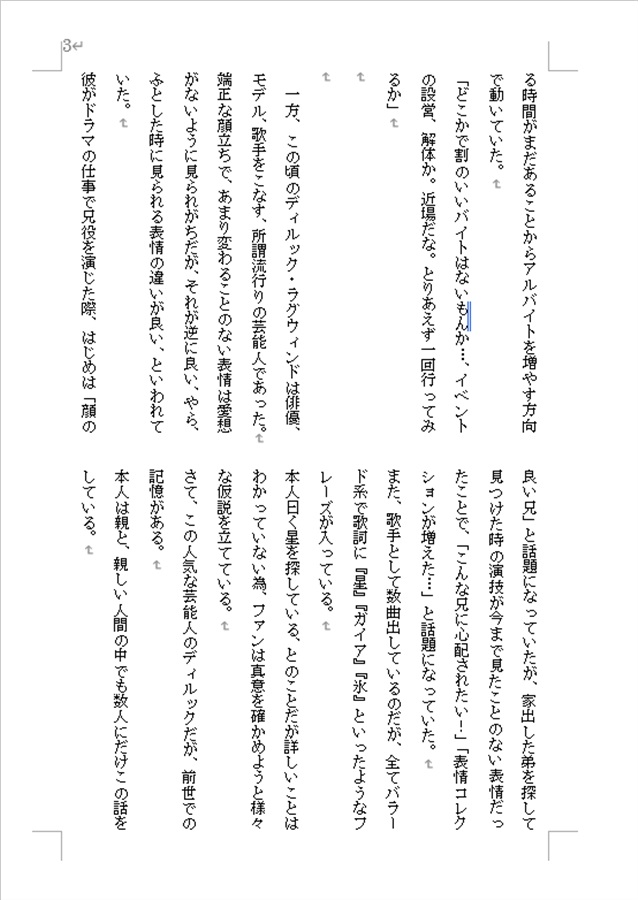 3
る時間がまだあることからアルバイトを増やす方向
で動いていた。
「どこかで割のいいバイトはないもんか…、イベント
の設営、解体か。近場だな。とりあえず一回行ってみ
るか」
一方、この頃のディルック・ラグウィンドは俳優、
モデル、歌手をこなす、所謂流行りの芸能人であった。
端正な顔立ちで、あまり変わることのない表情は愛想
がないように見られがちだが、それが逆に良い、やら、
ふとした時に見られる表情の違いが良い、といわれて
いた。
彼がドラマの仕事で兄役を演じた際、はじめは「顔の
良い兄」と話題になっていたが、家出した弟を探して
見つけた時の演技が今まで見たことのない表情だっ
たことで、「こんな兄に心配されたい！」「表情コレク
ションが増えた…」と話題になっていた。
また、歌手として数曲出しているのだが、全てバラー
ド系で歌詞に『星』『ガイア』『氷』といったようなフ
レーズが入っている。
本人曰く星を探している、とのことだが詳しいことは
わかっていない為、ファンは真意を確かめようと様々
な仮説を立てている。
さて、この人気な芸能人のディルックだが、前世での
記憶がある。
本人は親と、親しい人間の中でも数人にだけこの話を
している。